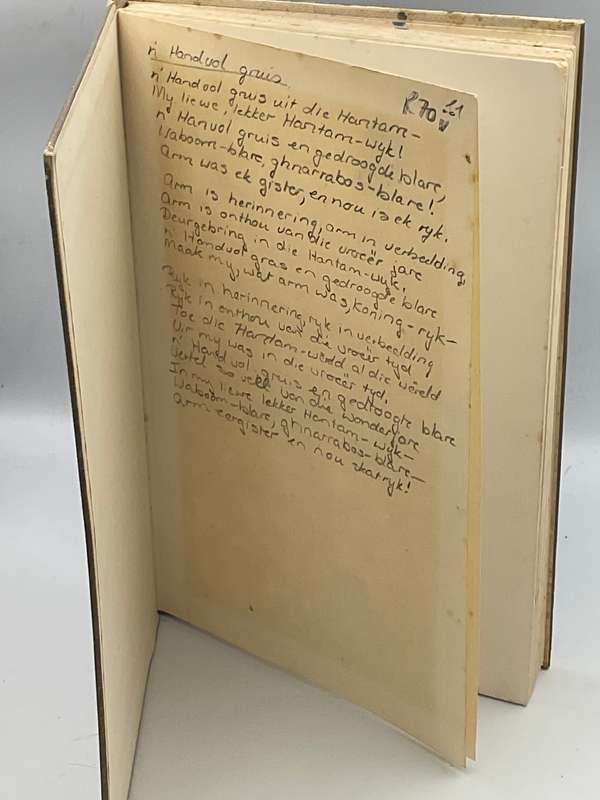 n' Handvol gruis
R70 11
n' Handvol gruis uit die Hantam-
My liewe, lekker Hantam-wyk!
n' Hanvol gruis en gedroogde blare,
Waboom-blare, ghnarrabos-blare!
Arm was ek gister, en nou is ek ryk.
Arm is herinnering, arm in verbeelding,
Arm is onthou van die vroeër jare
Deurgebring in die Hantam-wyk!
n' Handvol gras en gedroogde blare
Maak my, wat arm was, koning-ryk-
Ryk in herinnering, ryk in verbeelding
Ryk in onthou van die vroeër tyd
Toe die Hantam-wêrld al die wêreld
Vir my was in die vroeër tyd.
n' Handvol gruis en gedroogte blare
Vertel so veel van die wonderjare
In my liewe lekker Hantam-wyk-
Waboom-blare, ghnarrabos-blare-
Arm eergister en nou skatryk!